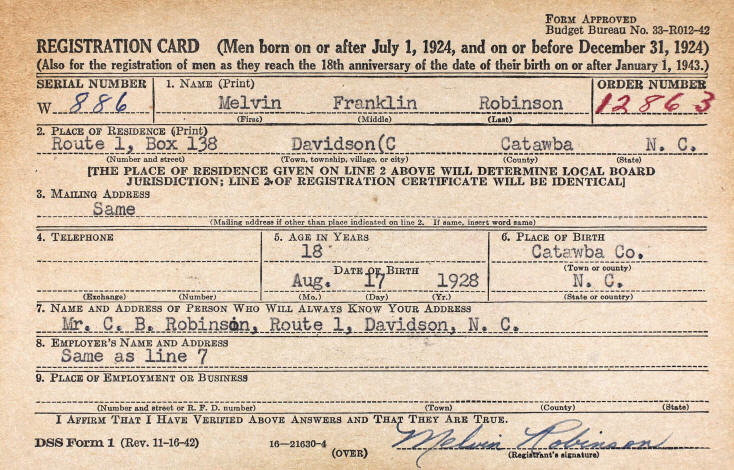 FORM APPROVED
Budget Bureau No. 33-R012-42
REGISTRATION CARD (Men born on or after July 1, 1924, and on or before December 31, 1924)
(Also for the registration of men as they reach the 18th anniversary of the date of their birth on or after January 1, 1943.)
SERIAL NUMBER 1. NAME (Print) ORDER NUMBER
W 886 Melvin Franklin Robinson 12863
(First) (Middle) (Last)
2. PLACE OF RESIDENCE (Print)
Route 1, Box 138 Davidson(C Catawba N. C.
(Number and street) (Town, township, village, or city) (County) (State)
[THE PLACE OF RESIDENCE GIVEN ON LINE 2 ABOVE WILL DETERMINE LOCAL BOARD
JURISDICTION; LINE 2 OF REGISTRATION CERTIFICATE WILL BE IDENTICAL]
3. MAILING ADDRESS
Same
(Mailing address if other than place indicated on line 2. If same, insert word same)
4. TELEPHONE 5. AGE IN YEARS 6. PLACE OF BIRTH
18 Catawba Co.
DATE OF BIRTH (Town or county)
Aug. 17 1928 N. C.
(Exchange) (Number) (Mo.) (Day) (Yr.) (State or country)
7. NAME AND ADDRESS OF PERSON WHO WILL ALWAYS KNOW YOUR ADDRESS
Mr. C. B. Robinson, Route 1, Davidson, N. C.
8. EMPLOYER'S NAME AND ADDRESS
Same as line 7
9. PLACE OF EMPLOYMENT OR BUSINESS
(Number and street or R. F. D. number) (Town) (County) (State)
I AFFIRM THAT I HAVE VERIFIED ABOVE ANSWERS AND THAT THEY ARE TRUE.
DSS Form 1 (Rev. 11-16-42) 16—21630-4 Melvin Robinson
(OVER) (Registrant's signature)